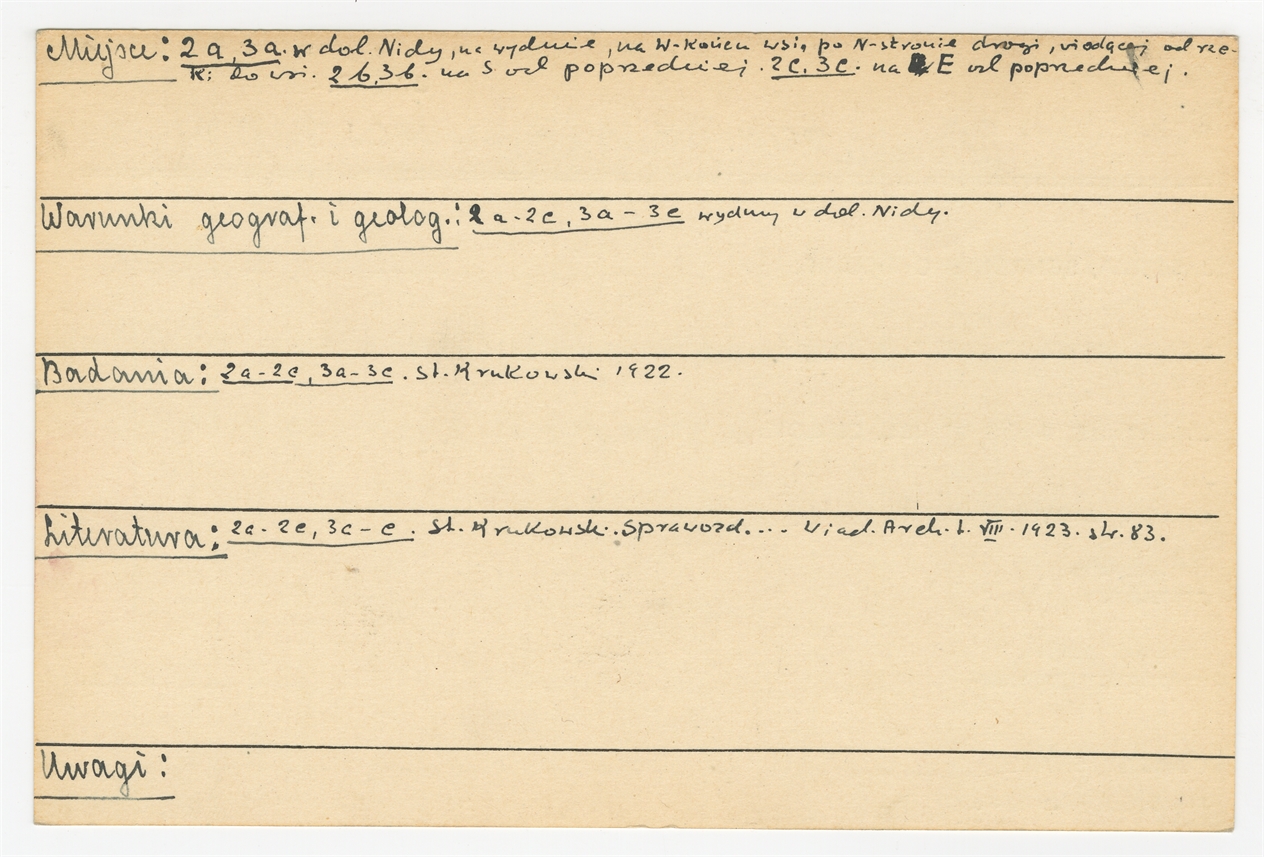 Miejsce: 2a, 3a. w dol. Nidy, na wydmie, na W-końcu wsi, po N-stronie drogi, wiodącej od rze-
ki do wsi. 2b, 3b. na S od poprzedniej. 2c, 3c. na E od poprzedniej.
Warunki geograf. i geolog.: 2a-2c, 3a-3c wydmy w dol. Nidy.
Badania: 2a-2c, 3a-3c. St. Krukowski 1922.
Literatura: 2a-2c, 3a-c. St. Krukowski. Sprawozd.... Wiad. Arch. t. VIII. 1923. str. 83.
Uwagi: